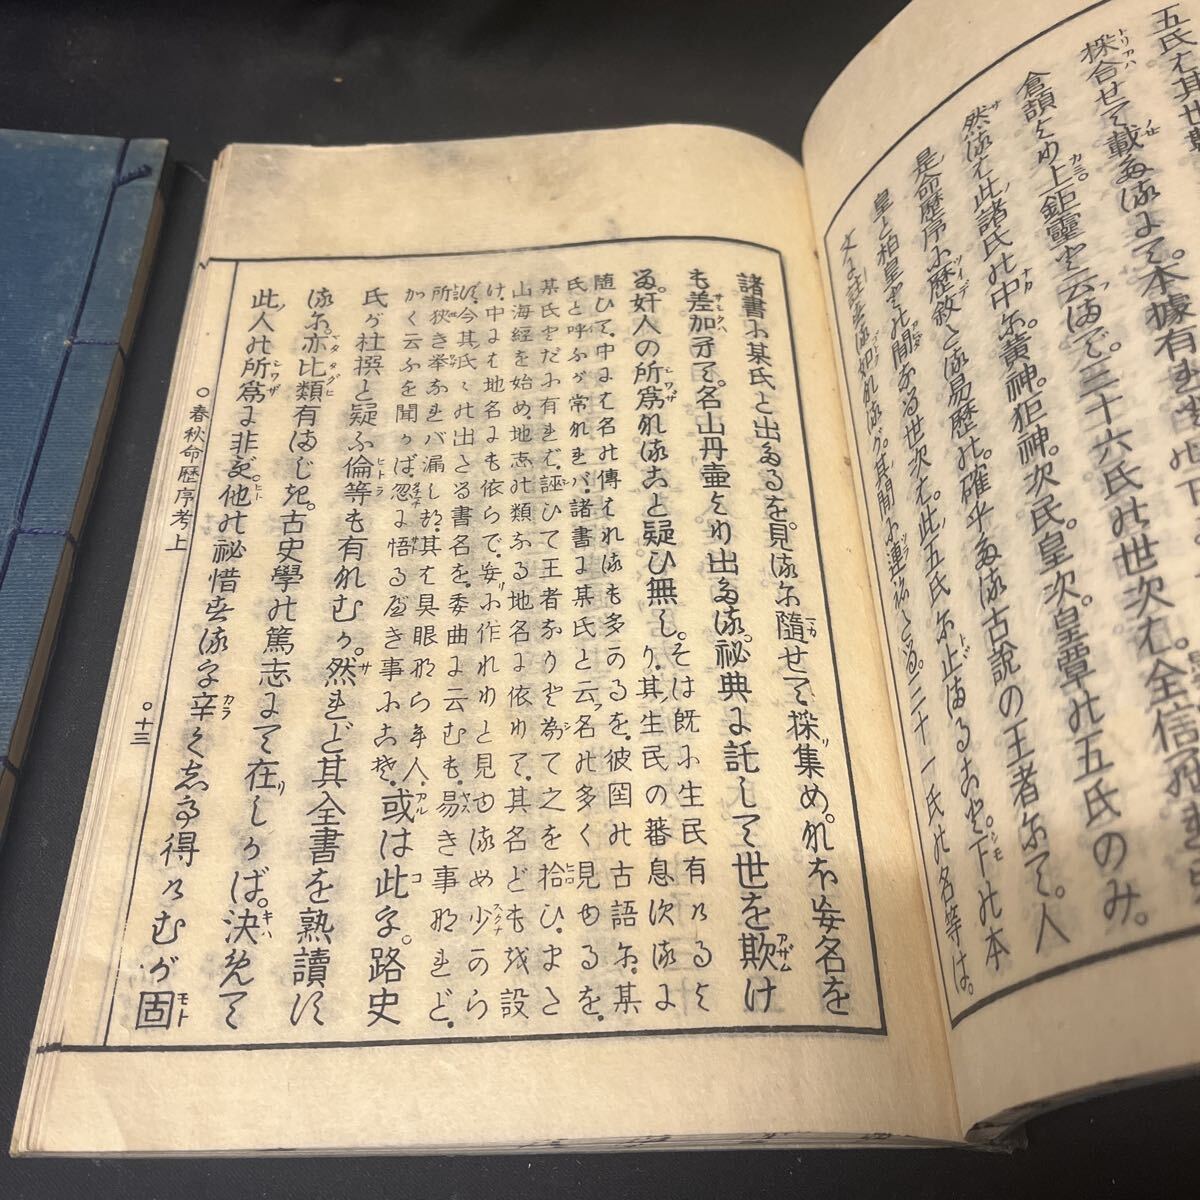 五氏は其世
採合せて載たるにて。本據有
倉頡より上鉅靈まで云へるまで。三十六氏の世次は。全信
然れば此諸氏の中に。黄神。狉神。次民。皇次。皇覃の五氏のみ。
是命歴序に歴敘と添易歴の。確乎たる古説の王者にて。人
皇と柏皇との間なる世次も。此五氏に止まること。下の本
文に註せる如くなるが。其間に連ねたる。三十一氏の名等は。
諸書に某氏と出たるを。見るに隨せて採集め。なほ妄名を
も差加子て。名山丹壷より出たる。祕典に託して世を欺け
る。奸人の所爲なること疑ひ無し。そは既に生民有れるよ
り。其生民の蕃息次るに
隨ひて。中には名の傳はれるも多かるを。彼国の古語に。某
氏と呼ふが常なれば。諸書に某氏と云ふ名の多く見ゆるを。
某氏とだに有れば。誣ひて王者なりと為て之を拾ひ。また
山海經を始め。地志の類なる地名に依りて。其名どもを設
け。中には地名にも依らで。妄に作れりと見ゆるめ少から
ず。今其氏〻の出たる書名を。委曲に云むも。易き事なれど。
所狭き挙なれば漏しぬ。其は具眼ならむ人。
かく云ふを聞かば忽に悟るべき事にこそ。或は此字。路史
氏が杜撰と疑ふ倫等も有なむか。然れど其全書を熟讀に
るに。亦比類有まじき。古史學の篤志にて在しかば。決めて
此人の所爲に非ず。他の祕惜せる字辛くして得つらむが固
春秋命歴序考上
十三